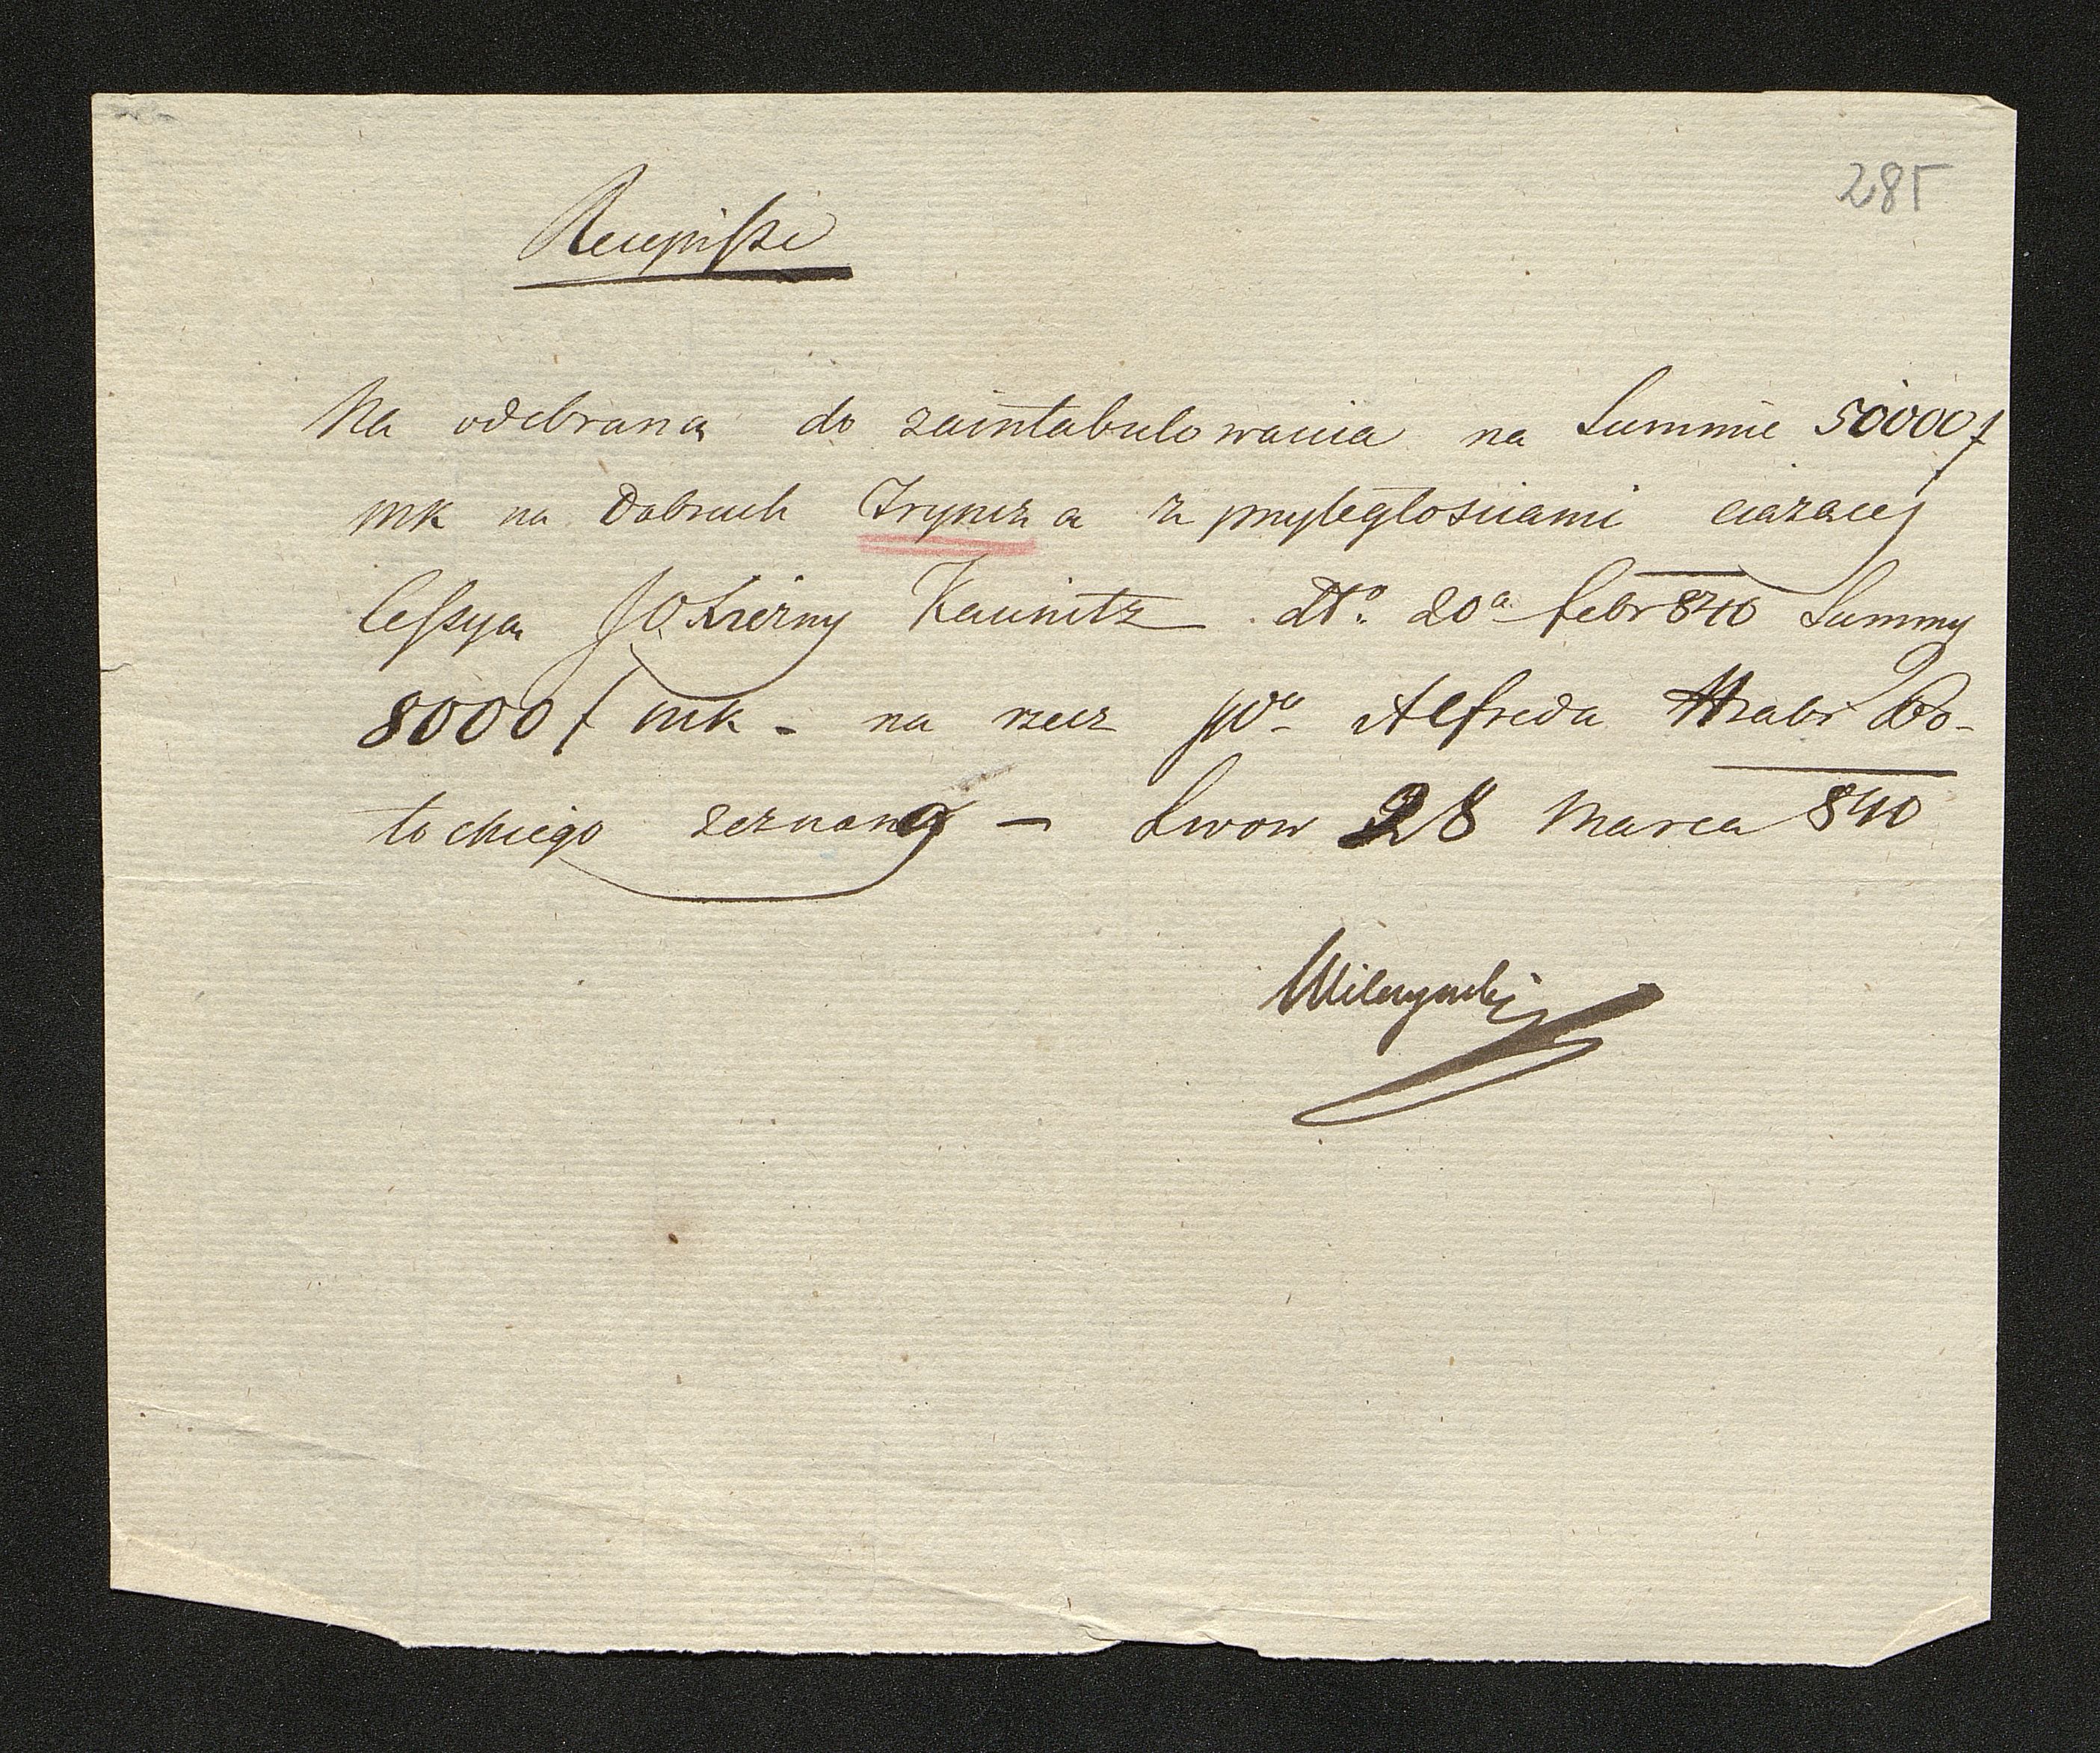 285
Recepisse
Na odebraną do zaintabulowania na Summie 50000 f
mk na Dobrach Tryncza z przyległosciami ciążącej
Cessyą JO Xiężny Kaunitz dto 20a febr 840 Summy
8000 f mk - na rzecz JWo Alfreda Hrabi Po-
tockiego zeznaną — Lwow 28 Marca 840
Wilczynski